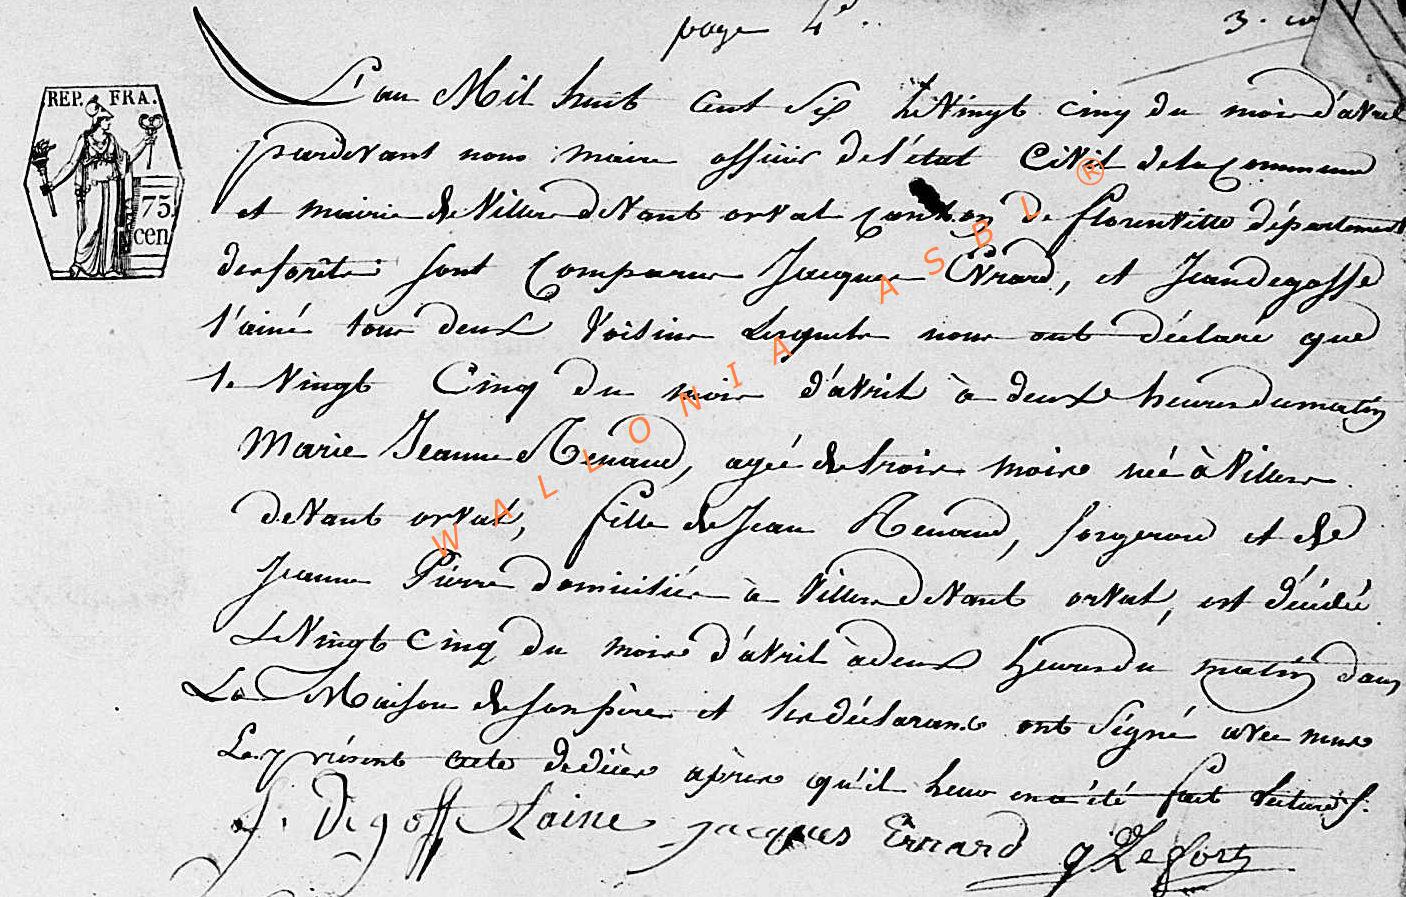 page 4e
3.
REP. FRA.
75.
cen
L'an Mil huit cent Six le Vingt cinq du mois d'avril
pardevant nous maire officier de l'état Civil de la Commune
et mairie de Villers deVant orval canton de florenville département
des forêts sont Comparus Jacques Evrard, et Jean degosse
l'ainé tous deux Voisins lesquels nous ont déclaré que
le Vingt Cinq du mois d'avril à deux heures du matin
Marie Jeanne Renaud, agée de trois mois née à Villers
deVant orval, fille de Jean Renaud, forgeron et de
Jeanne Pierre domiciliés à Villers deVant orval, est décédée
Le Vingt Cinq du mois d'avril à deux heures du matin dans
La Maison de son père et les déclarans ont Signé avec nous
Le présent acte de décès après qu'il leur en a été fait lecture
J. Degoss Laine jacques Evrard Lefort
WALLONIA ASBL ®